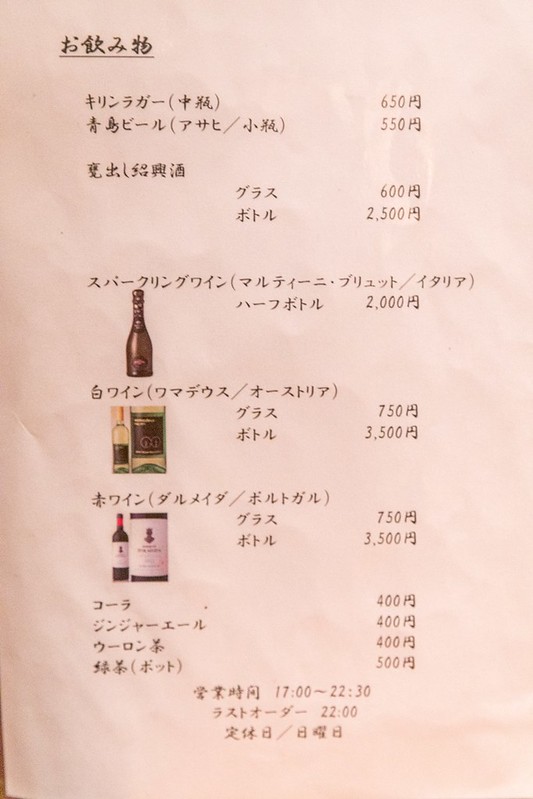 お飲み物
キリンラガー(中瓶) 650円
青島ビール(アサヒ/小瓶) 550円
甕出し紹興酒
グラス 600円
ボトル 2,500円
スパークリングワイン(マルティーニ・ブリュット/イタリア)
ハーフボトル 2,000円
白ワイン(ワマデウス/オーストリア)
グラス 750円
ボトル 3,500円
赤ワイン(ダルメイダ/ポルトガル)
グラス 750円
ボトル 3,500円
コーラ 400円
ジンジャーエール 400円
ウーロン茶 400円
緑茶(ポット) 500円
営業時間 17:00~22:30
ラストオーダー 22:00
定休日/日曜日